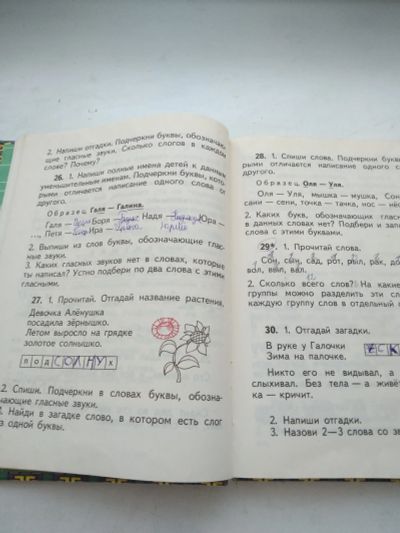 2. Напиши отгадки. Подчеркни буквы, обозначаю-
щие гласные звуки. Сколько слогов в каждом
слове? Почему?
26. 1. Напиши полные имена детей к данным
уменьшительным именам. Подчеркни буквы, кото-
рыми отличается написание одного слова от
другого.
Образец. Галя — Галина.
Галя — Боря — Надя — Юра —
..., Петя — Ира —
2. Выпиши из слов буквы, обозначающие глас-
ные звуки.
3. Каких гласных звуков нет в словах, которые
ты написал? Устно подбери по два слова с этими
гласными.
27. 1. Прочитай. Отгадай название растения.
Девочка Алёнушка
посадила зёрнышко.
Летом выросло на грядке
золотое солнышко.
п о д С О Л Н У х
2. Спиши. Подчеркни в словах буквы, обозна-
чающие гласные звуки.
Найди в загадке слово, в котором есть слог
из одной буквы.
28. 1. Спиши слова. Подчеркни буквы
рыми отличается написание одного с
другого.
Образец. Оля — Уля.
Оля — Уля, мышка — мушка,
сани — сени, точка — тачка, нос —
2. Каких букв, обозначающих гласны
в данных словах нет? Подбери и запи
слова с этими буквами.
29*. 1. Прочитай слова.
сад, рот, рак,
вол, вал.
2. Сколько всего слов? На какие
группы можно разделить эти сл
каждую группу слов в отдельный с
30. 1. Отгадай загадки.
В руке у Галочки
Зима на палочке.
Никто его не видывал, а
слыхивал. Без тела — а живёт
ка — кричит.
2. Напиши отгадки.
3. Назови 2—3 слова со зв